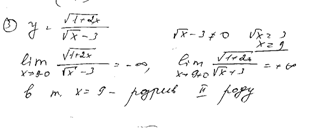 ③ y = √(1+2x) / (√x − 3)   √x − 3 ≠ 0   √x = 3
x = 9
lim x→9-0 √(1+2x) / (√x − 3) = −∞,   lim x→9+0 √(1+2x) / (√x + 3) = +∞
в т. x = 9 – розрив II роду